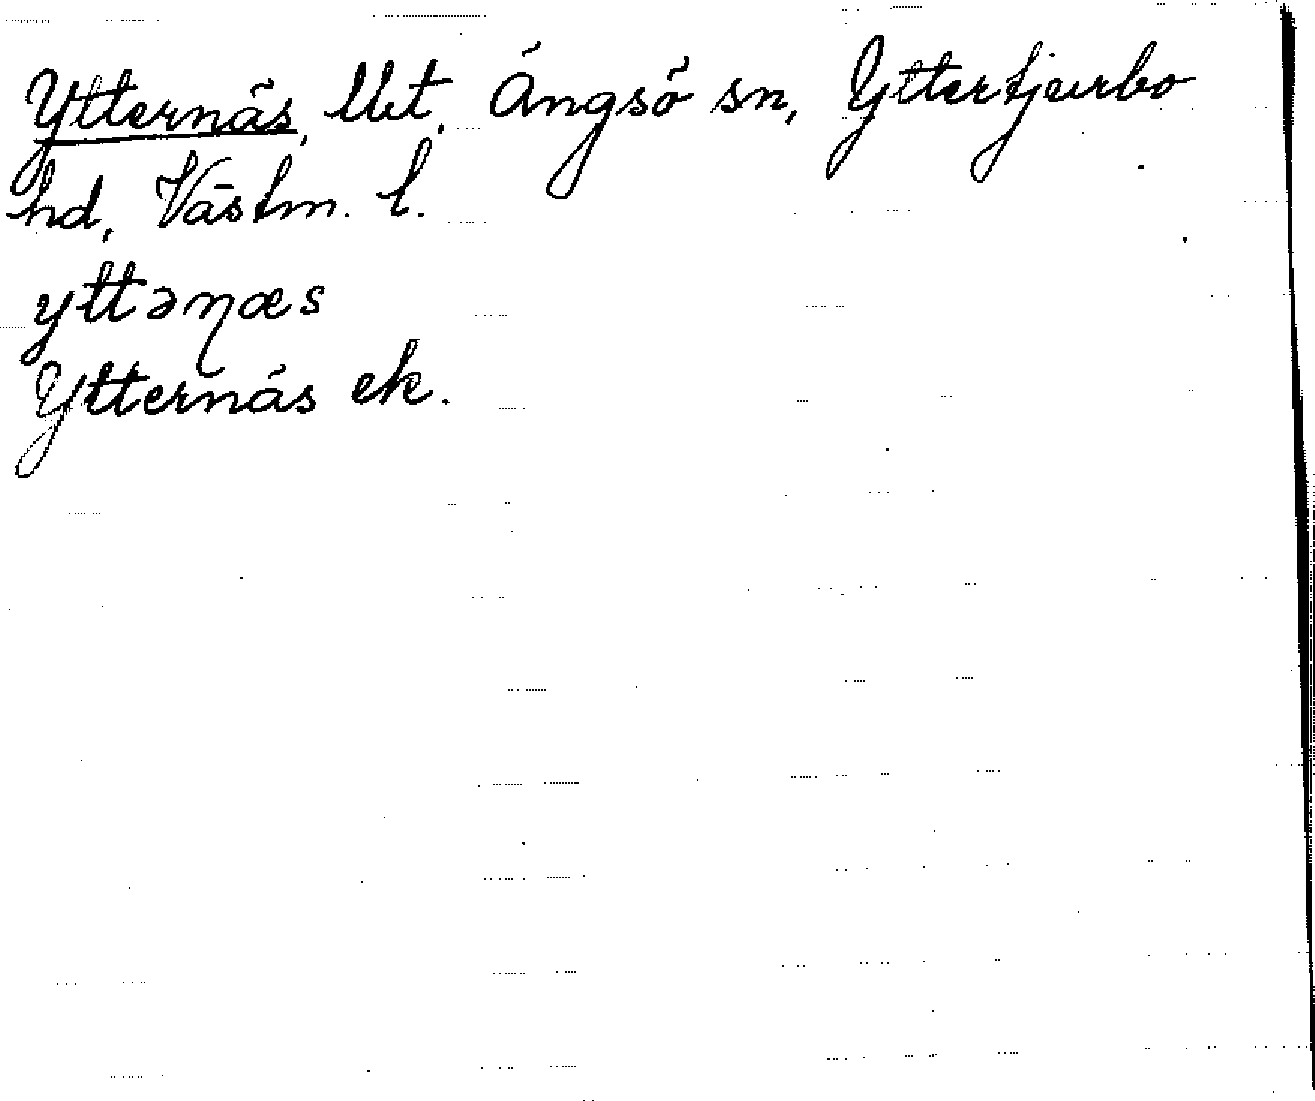 Ytternäs, Ängsö sn, Yttertjurbo
hd, Västm. l.
yttəɳæs
Ytternäs ek.